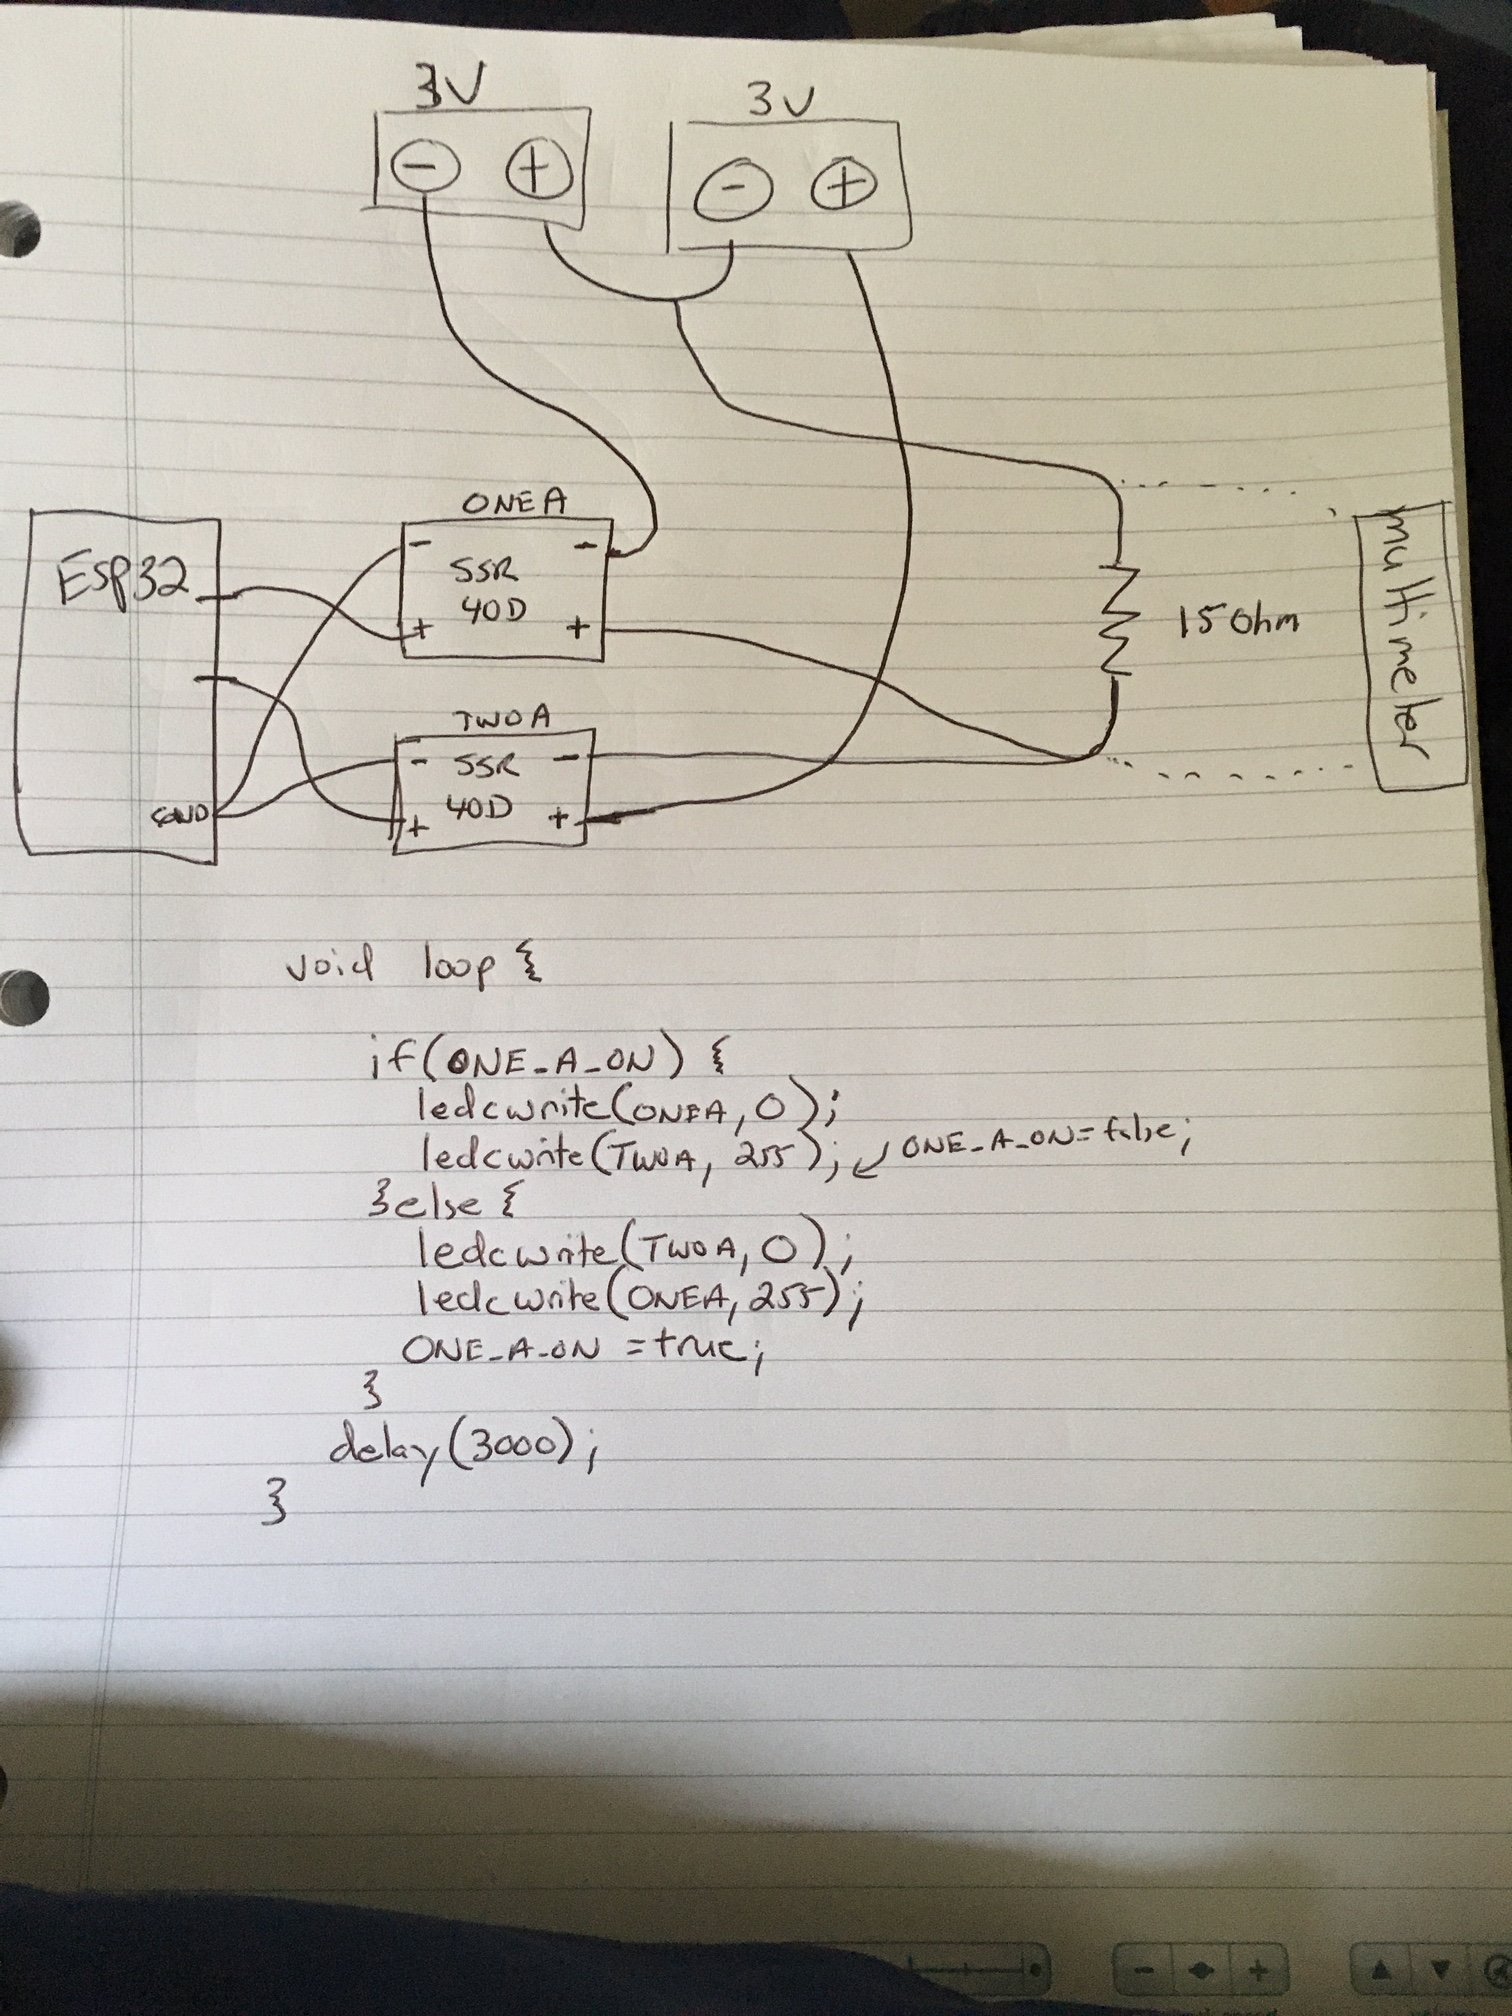 3V
3V
- + - +
ONEA
Esp32
- SSR -
+ 40D +
15 Ohm
multimeter
TWOA
- SSR -
+ 40D +
GND
void loop {
if(ONE_A_ON) {
ledcwrite(ONEA, 0);
ledcwrite(TWOA, 255); ↙ ONE_A_ON=false;
}else {
ledcwrite(TWOA, 0);
ledcwrite(ONEA, 255);
ONE_A_ON = true;
}
delay(3000);
}